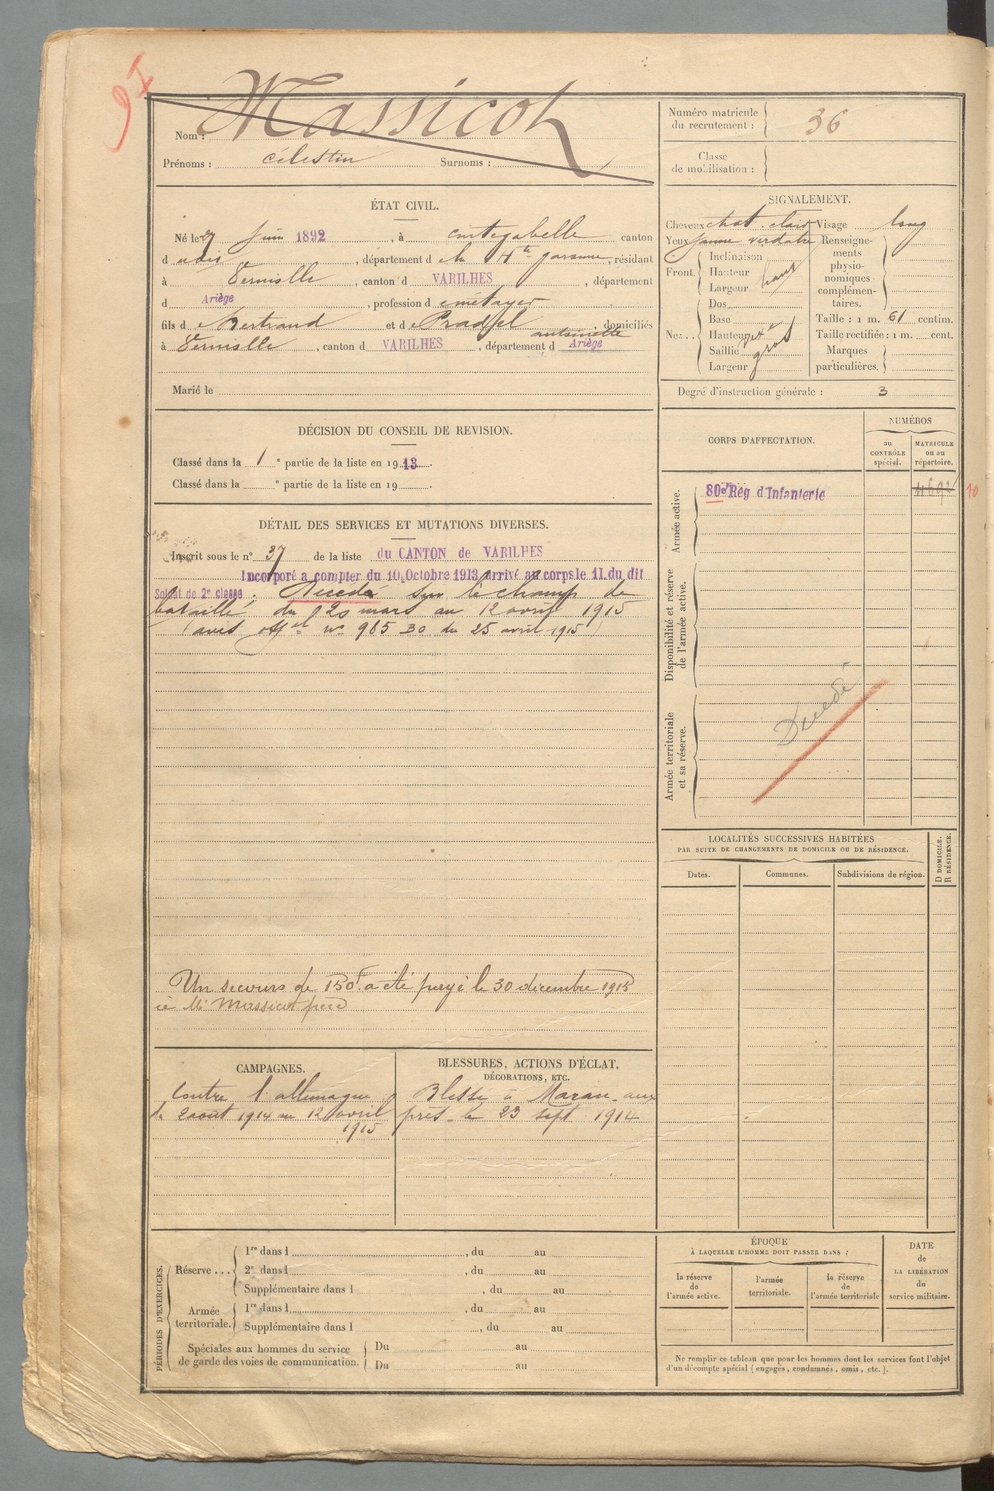 Nom : Massicot
Prénoms : célestin Surnoms :
ÉTAT CIVIL.
Né le 27 Juin 1892, à cintegabelle canton
d udit, département d e la Hte garonne, résidant
à Verniolle, canton d VARILHES, département
d Ariège, profession d e métayer
fils d e Bertrand et d e Pradel antoinette, domiciliés
à Verniolle, canton d VARILHES, département d Ariège
Marié le
DÉCISION DU CONSEIL DE REVISION.
Classé dans la 1e partie de la liste en 1913.
Classé dans la e partie de la liste en 19
DÉTAIL DES SERVICES ET MUTATIONS DIVERSES.
Inscrit sous le n° 37 de la liste du CANTON de VARILHES
Incorporé a compter du 10 Octobre 1913 arrivé au corps le 11 du dit
Soldat de 2e classe. Décédé sur le champ de
bataille du 20 mars au 12 avril 1915
(avis offel n° 985 30 du 25 avril 1915)
Un secours de 150f a été payé le 30 décembre 1915
à Mr Massicot père
CAMPAGNES.
Contre l'allemagne
du 2 août 1914 au 12 avril
1915
BLESSURES, ACTIONS D'ÉCLAT,
DÉCORATIONS, ETC.
Blessé à
près le 23 sept 1914
PÉRIODES D'EXERCICES.
Réserve ...
1re dans l , du au
2e dans l , du au
Supplémentaire dans l , du au
Armée territoriale.
1re dans l , du au
Supplémentaire dans l , du au
Spéciales aux hommes du service
de garde des voies de communication.
Du au
Du au
Numéro matricule
du recrutement : 36
Classe
de mobilisation :
SIGNALEMENT.
Cheveux chat. clair Visage long
Yeux jaune verdatre Renseignements
physionomiques
complémentaires.
Front.
Inclinaison
Hauteur haut
Largeur
Nez..
Dos
Base
Hauteur
Saillie gros
Largeur
Taille : 1 m. 61 centim.
Taille rectifiée : 1 m. cent.
Marques
particulières.
Degré d'instruction générale : 3
CORPS D'AFFECTATION.
NUMÉROS
au
CONTRÔLE
spécial.
MATRICULE
ou au
répertoire.
Armée active.
80e Rég d'Infanterie
10
Disponibilité et réserve
de l'armée active.
Armée territoriale
et sa réserve.
Décédé
LOCALITÉS SUCCESSIVES HABITÉES
PAR SUITE DE CHANGEMENTS DE DOMICILE OU DE RÉSIDENCE.
D DOMICILE.
R RÉSIDENCE.
Dates. Communes. Subdivisions de région.
ÉPOQUE
À LAQUELLE L'HOMME DOIT PASSER DANS :
la réserve
de
l'armée active.
l'armée
territoriale.
la réserve
de
l'armée territoriale
DATE
de
LA LIBÉRATION
du
service militaire.
Ne remplir ce tableau que pour les hommes dont les services font l'objet
d'un décompte spécial (engagés, condamnés, omis, etc.).